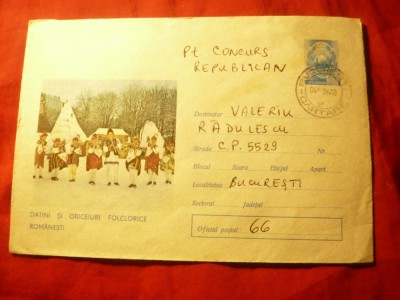 Pt CONCURS
REPUBLICAN
Destinatar VALERIU
RĂDULESCU
Strada C.P. 5529 Nr.
Blocul Scara Etajul Apart.
Localitatea BUCUREȘTI
Sectorul Județul
Oficiul poștal: 66
DATINI ȘI OBICEIURI FOLCLORICE
ROMÂNEȘTI